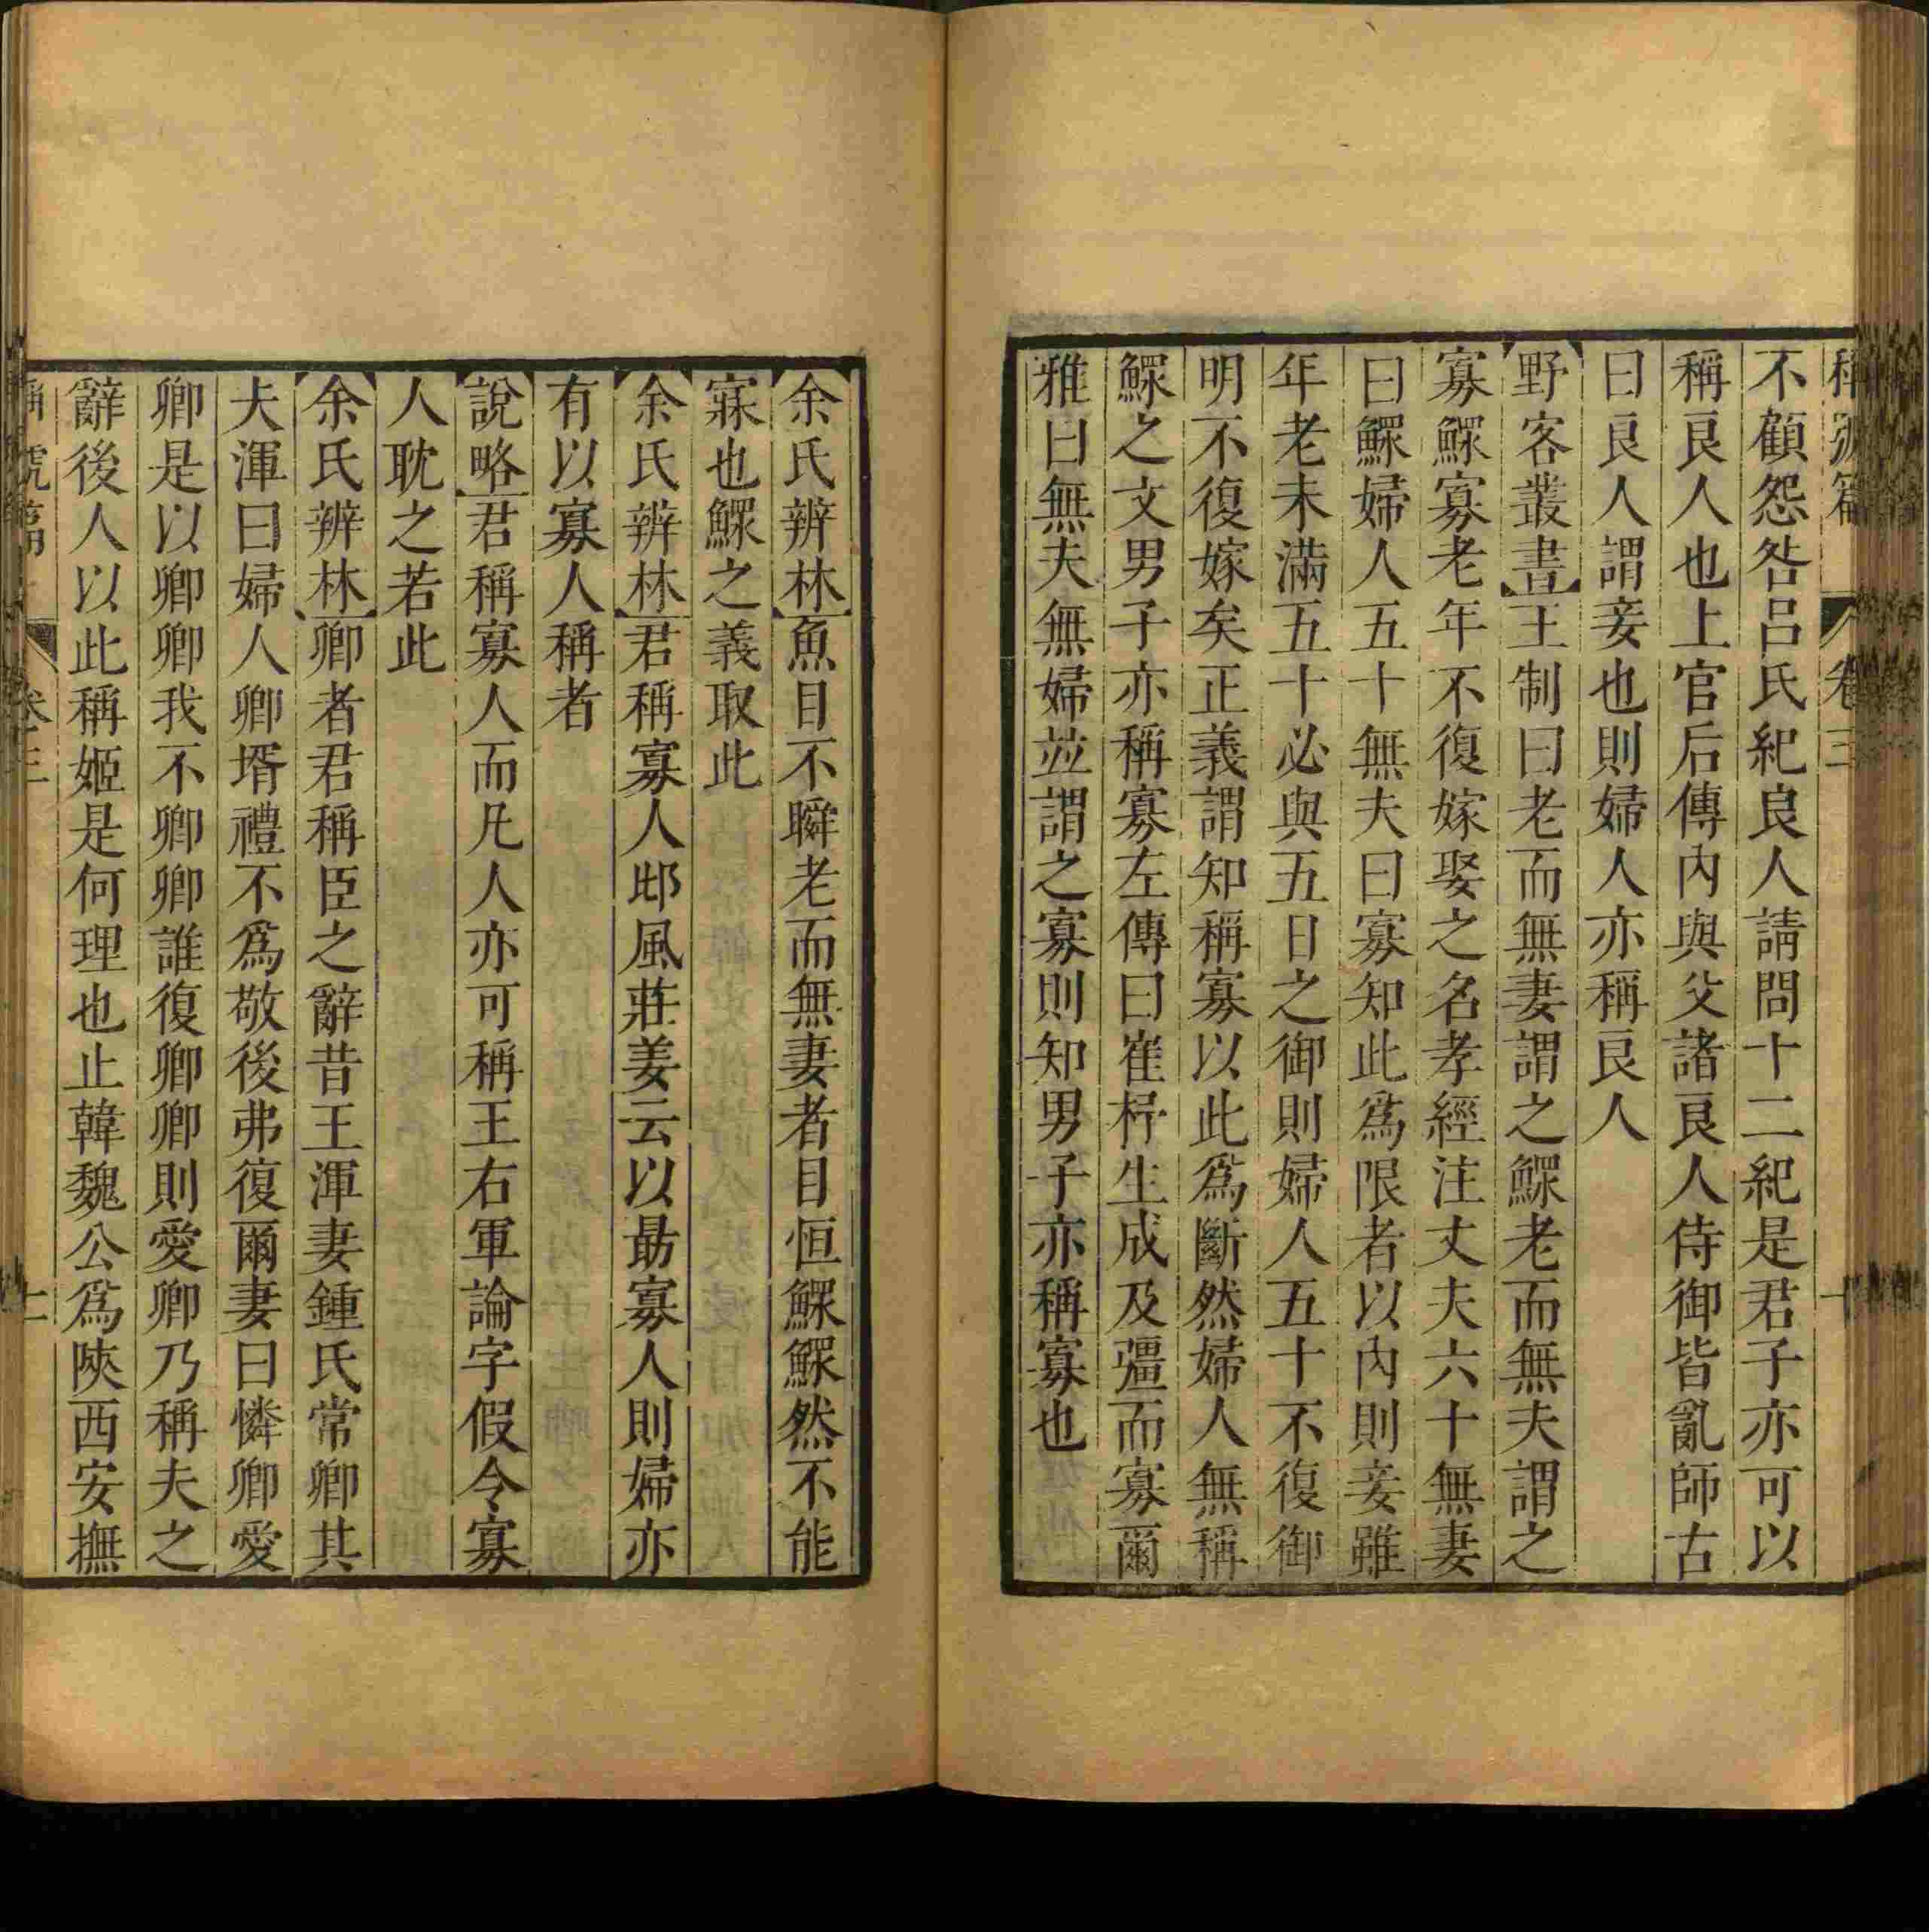 稱號篇 卷三
不顧怨咎呂氏紀良人請問十二紀是君子亦可以
稱良人也上官后傳內與父諸良人侍御皆亂師古
曰良人謂妾也則婦人亦稱良人
野客叢書王制曰老而無妻謂之鰥老而無夫謂之
寡鰥寡老年不復嫁娶之名孝經注丈夫六十無妻
曰鰥婦人五十無夫曰寡知此為限者以內則妾雖
年老未滿五十必與五日之御則婦人五十不復御
明不復嫁矣正義謂知稱寡以此為斷然婦人無稱
鰥之文男子亦稱寡左傳曰崔杼生成及彊而寡爾
雅曰無夫無婦並謂之寡則知男子亦稱寡也
余氏辨林魚目不瞬老而無妻者目恒鰥鰥然不能
寐也鰥之義取此
余氏辨林君稱寡人邶風莊姜云以勗寡人則婦亦
有以寡人稱者
說略君稱寡人而凡人亦可稱王右軍論字假令寡
人耽之若此
余氏辨林卿者君稱臣之辭昔王渾妻鍾氏常卿其
夫渾曰婦人卿壻禮不為敬後弗復爾妻曰憐卿愛
卿是以卿卿我不卿卿誰復卿卿則愛卿乃稱夫之
辭後人以此稱姬是何理也止韓魏公為陝西安撫
稱號篇 卷三